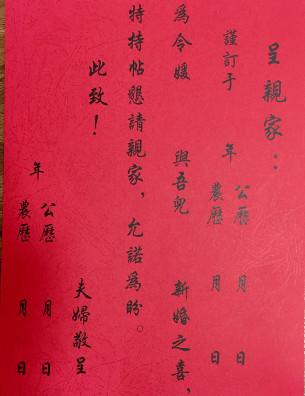 呈親家：
謹訂于 年 公歷 月 日
農歷 月 日
為令嬡 與吾兒 新婚之喜，
特持帖懇請親家，允諾為盼。
此致！
夫婦敬呈
年 公歷 月 日
農歷 月 日